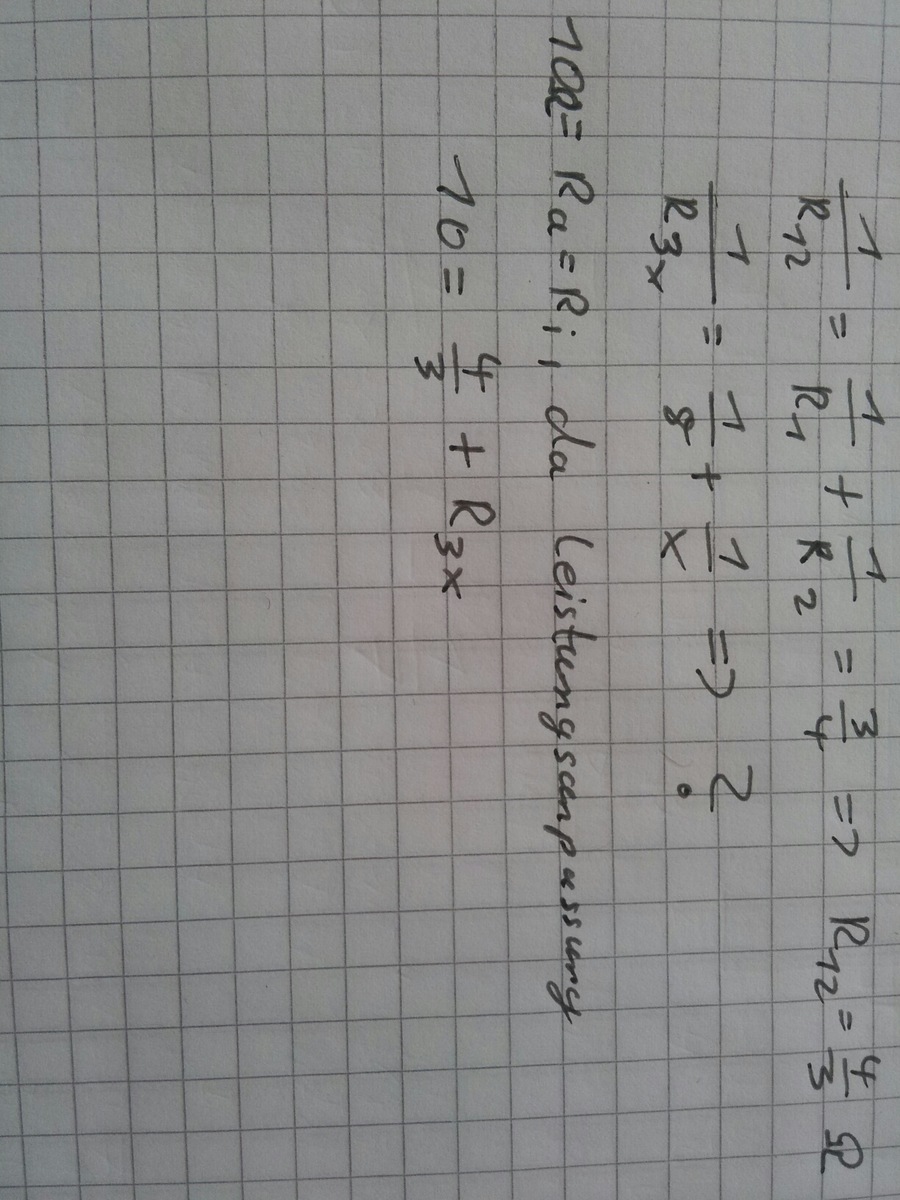 1/R12 = 1/R1 + 1/R2 = 3/4 => R12 = 4/3 Ω
1/R3x = 1/8 + 1/x => ?
10Ω = Ra = Ri, da Leistungsanpassung
10 = 4/3 + R3x